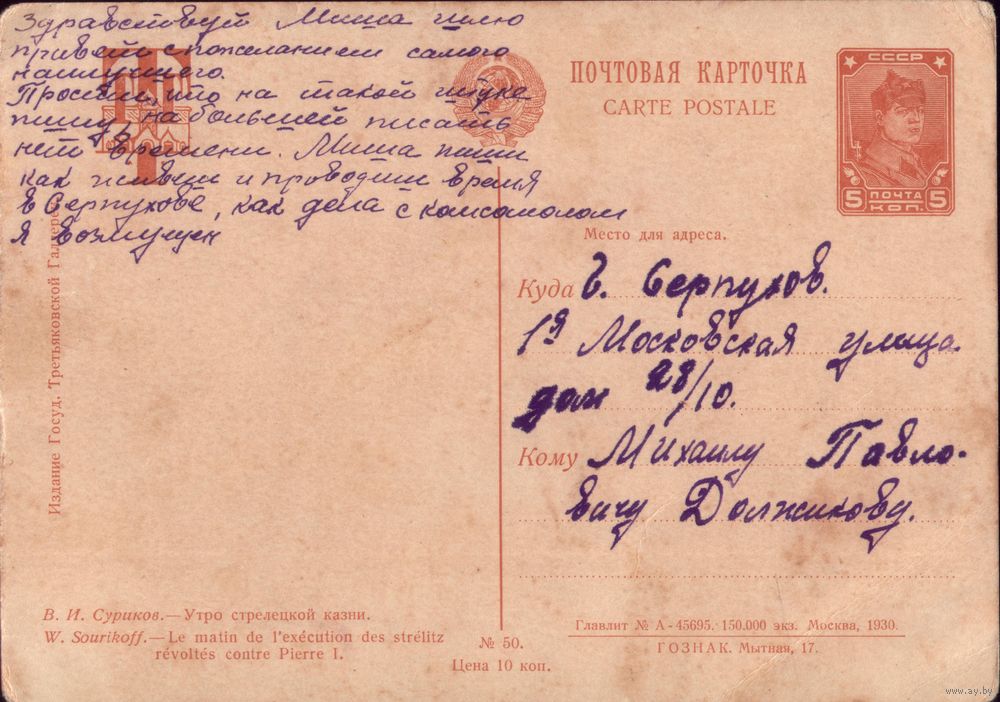 Здравствуй Миша шлю
привет с пожеланием самого
наилучшего.
Прости, что на такой штуке
пишу, на большей писать
нет времени. Миша пиши
как живеш и проводиш время
в Серпухове, как дела с комсомолом
я возмущен
ПОЧТОВАЯ КАРТОЧКА
CARTE POSTALE
СССР
5 ПОЧТА 5
КОП.
Место для адреса.
Куда г. Серпухов.
1я Московская улица
дом 28/10.
Кому Михаилу Павло-
вичу Должикову.
Издание Госуд. Третьяковской Галлереи
В. И. Суриков.—Утро стрелецкой казни.
W. Sourikoff.—Le matin de l'exécution des strélitz
révoltés contre Pierre I.
№ 50.
Цена 10 коп.
Главлит № А-45695. 150.000 экз. Москва, 1930.
ГОЗНАК. Мытная, 17.
www.ay.by